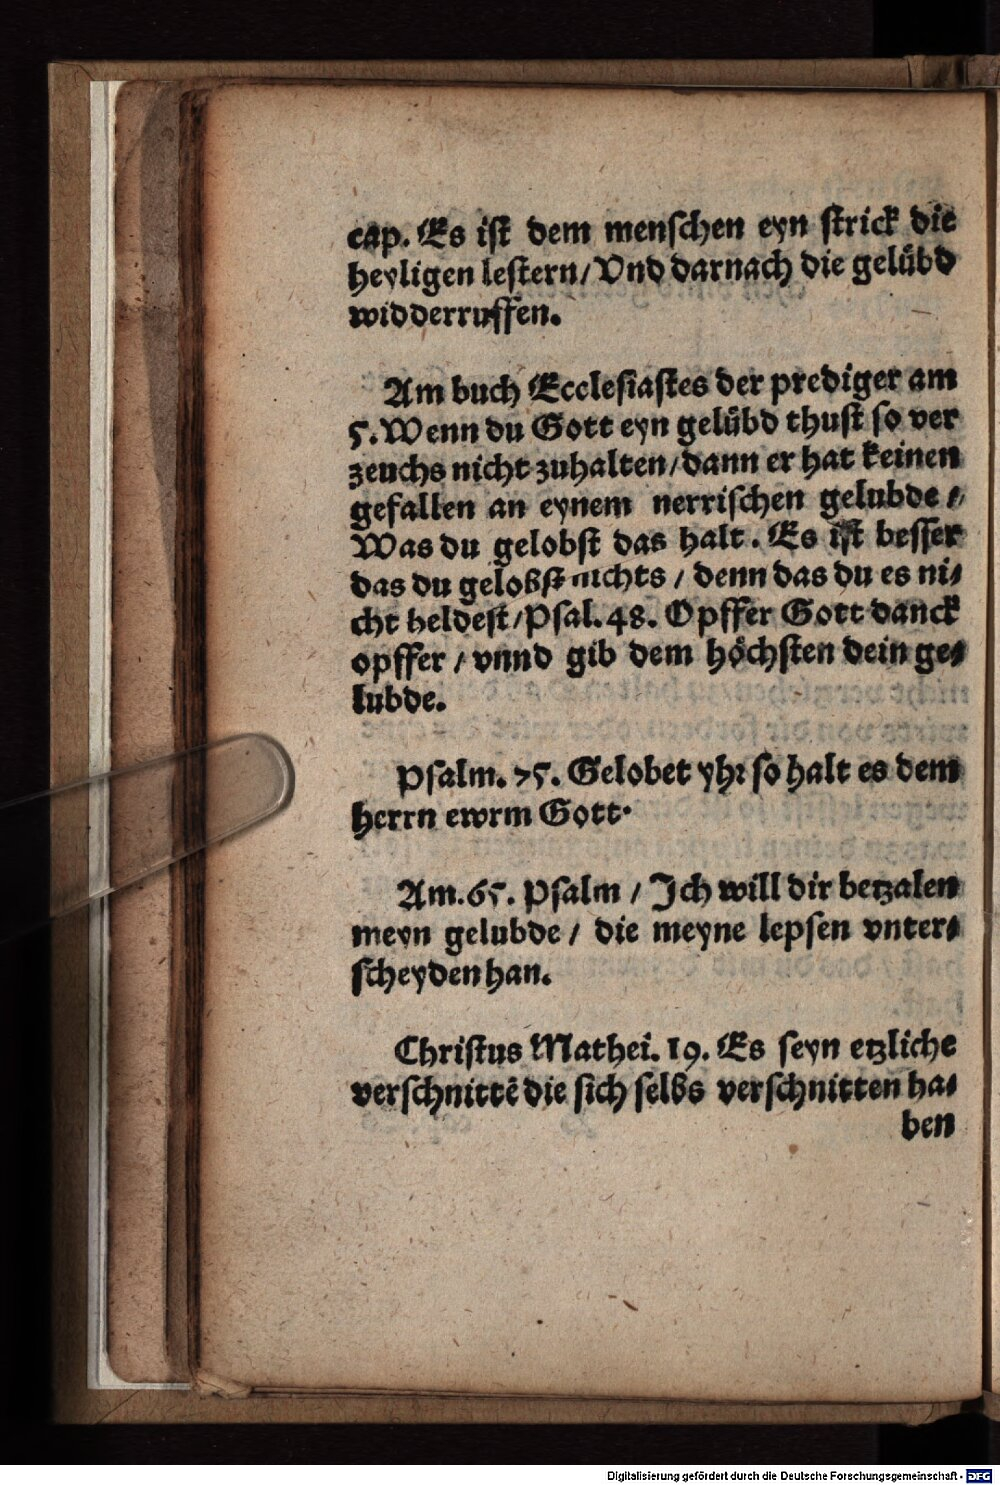 cap. Es ist dem menschen eyn strick die
heyligen lestern/ Vnd darnach die gelübd
widderruffen.
Am buch Ecclesiastes der prediger am
5. Wenn du Gott eyn gelübd thust so ver
zeuchs nicht zuhalten/ dann er hat keinen
gefallen an eynem nerrischen gelubde /
Was du gelobst das halt. Es ist besser
das du gelobst nichts / denn das du es ni⸗
cht heldest/ Psal. 48. Opffer Gott danck
opffer / vnnd gib dem höchsten dein ge⸗
lubde.
Psalm. 75. Gelobet yhr so halt es dem
herrn ewrm Gott.
Am. 65. Psalm / Ich will dir betzalen
meyn gelubde / die meyne lepsen vnter⸗
scheyden han.
Christus Mathei. 19. Es seyn etzliche
verschnittē die sich selbs verschnitten ha⸗
ben
Digitalisierung gefördert durch die Deutsche Forschungsgemeinschaft - DFG